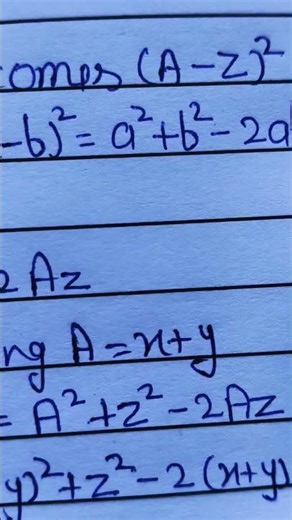 comes (A-Z)²
-b)² = a²+b²-2a
2 Az
ng A = x+y
= A²+z²-2Az
y)²+z²-2(x+y)